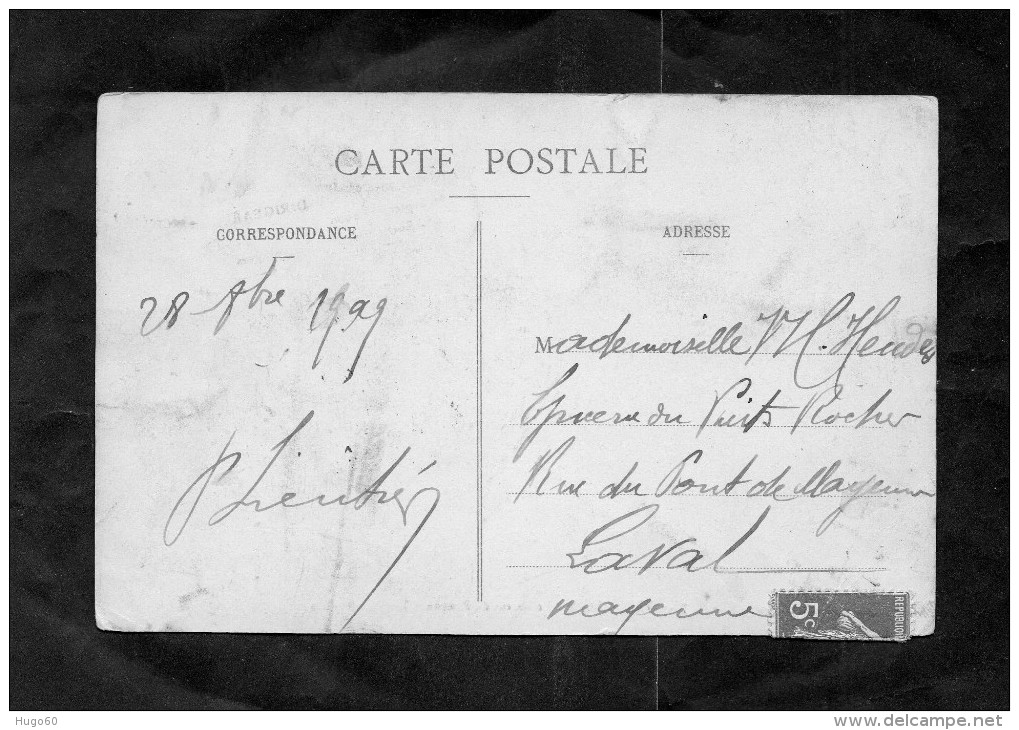 CARTE POSTALE
CORRESPONDANCE
28 1909
ADRESSE
Mademoiselle
du Puits Rocher
Rue du Pont de Mayenne
Laval
mayenne
5c
REPUBLIQ
Hugo60
www.delcampe.net